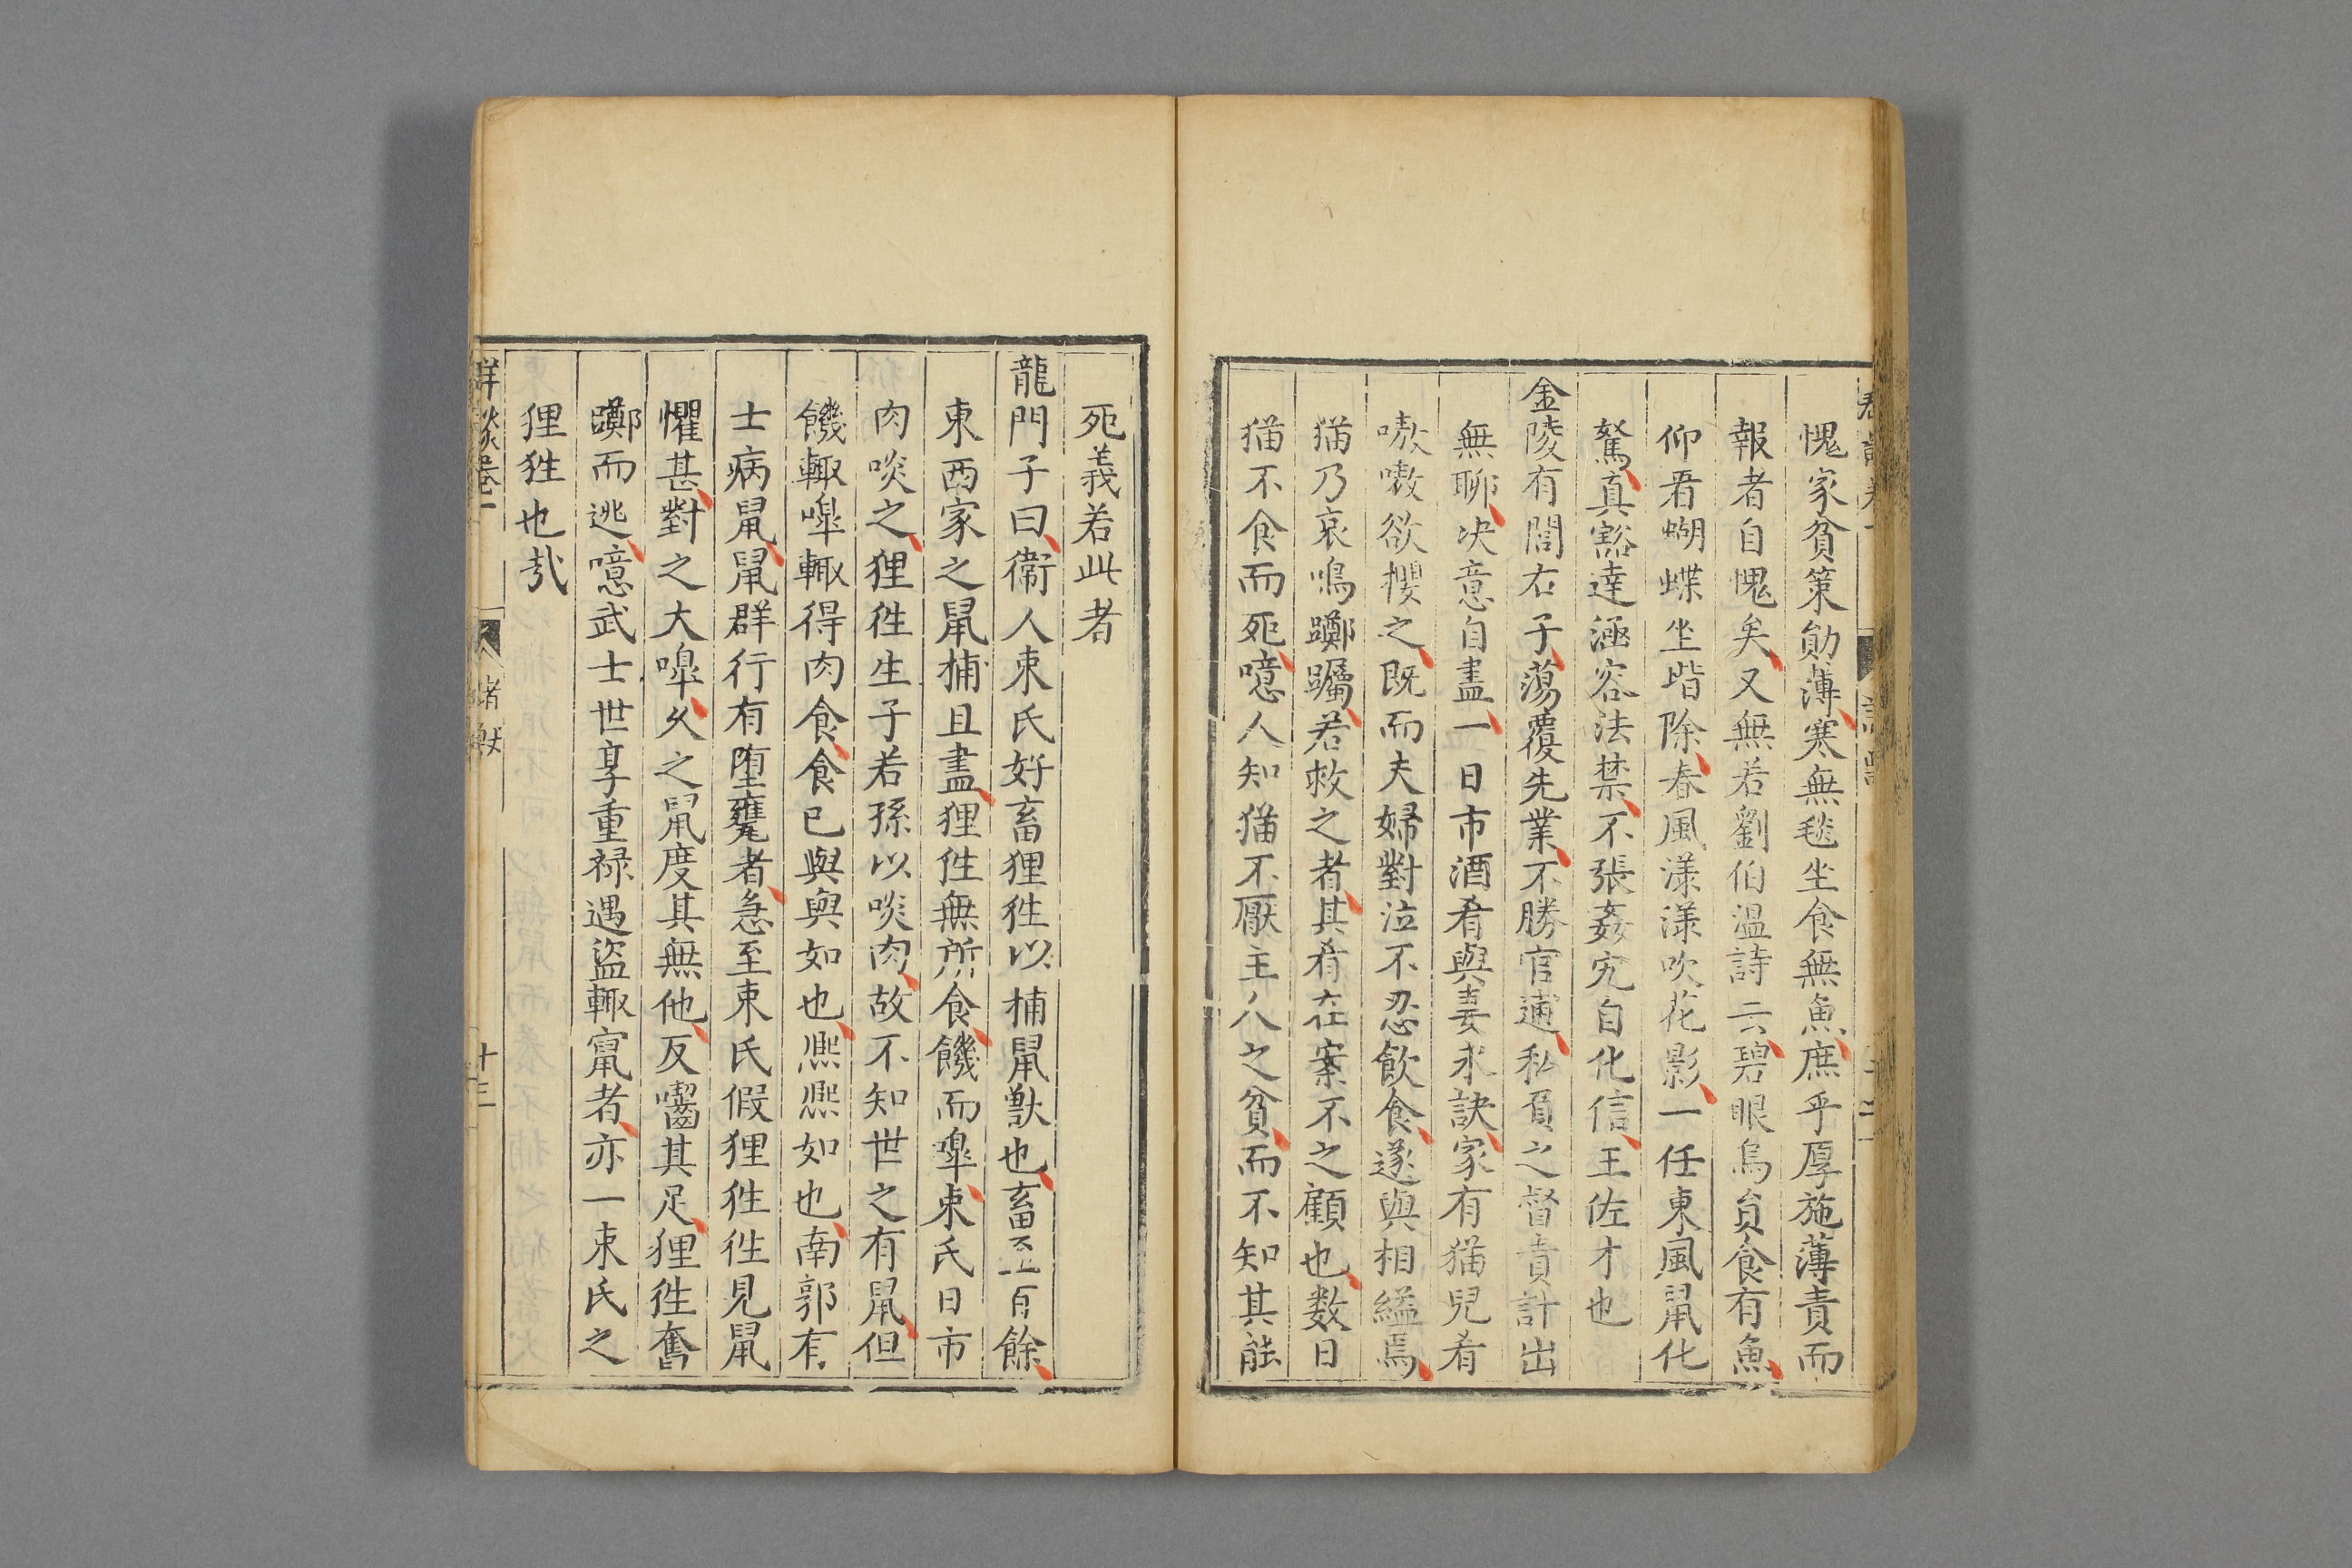 愧家貧策勛薄寒無毯坐食無魚庶乎厚施薄責而
報者自愧矣又無若劉伯温詩云碧眼烏負食有魚
仰看蝴蝶坐堦除春風漾漾吹花影一任東風鼠化
駕真豁達涵容法禁不張姦宄自化信王佐才也
金陵有閭右子蕩覆先業不勝官逋私負之督責計出
無聊决意自盡一日市酒肴與妻永訣家有猫兒肴
嗷嗷欲攖之既而夫婦對泣不忍飲食遂與相縊焉
猫乃哀鳴躑躅若救之者其肴在案不之顧也数日
猫不食而死噫人知猫不厭主人之貧而不知其能
死義若此者
龍門子曰衞人束氏好畜狸狌以捕鼠獸也畜至百餘
東西家之鼠捕且盡狸狌無所食饑而嘷束氏日市
肉啖之狸狌生子若孫以啖肉故不知世之有鼠但
饑輙嘷輙得肉食食已與與如也熙熙如也南郭有
士病鼠鼠群行有堕甕者急至束氏假狸狌狌見鼠
懼甚對之大嘷久之鼠度其無他反囓其足狸狌奮
躑而逃噫武士世享重禄遇盗輙竄者亦一束氏之
狸狌也㢤
群談卷一
諸獸
十三